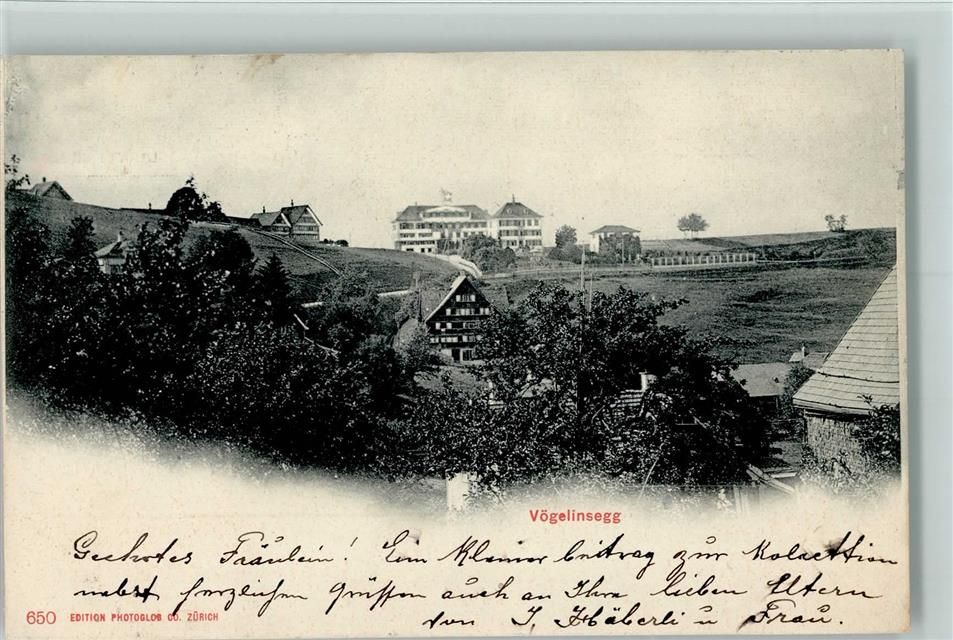 Vögelinsegg
Geehrtes Fräulein! Ein kleiner beitrag zur Kolacttion
nebst herzlichen Grüssen auch an Ihre lieben Eltern
von J. Häberli u Frau.
650 EDITION PHOTOGLOB CO. ZÜRICH